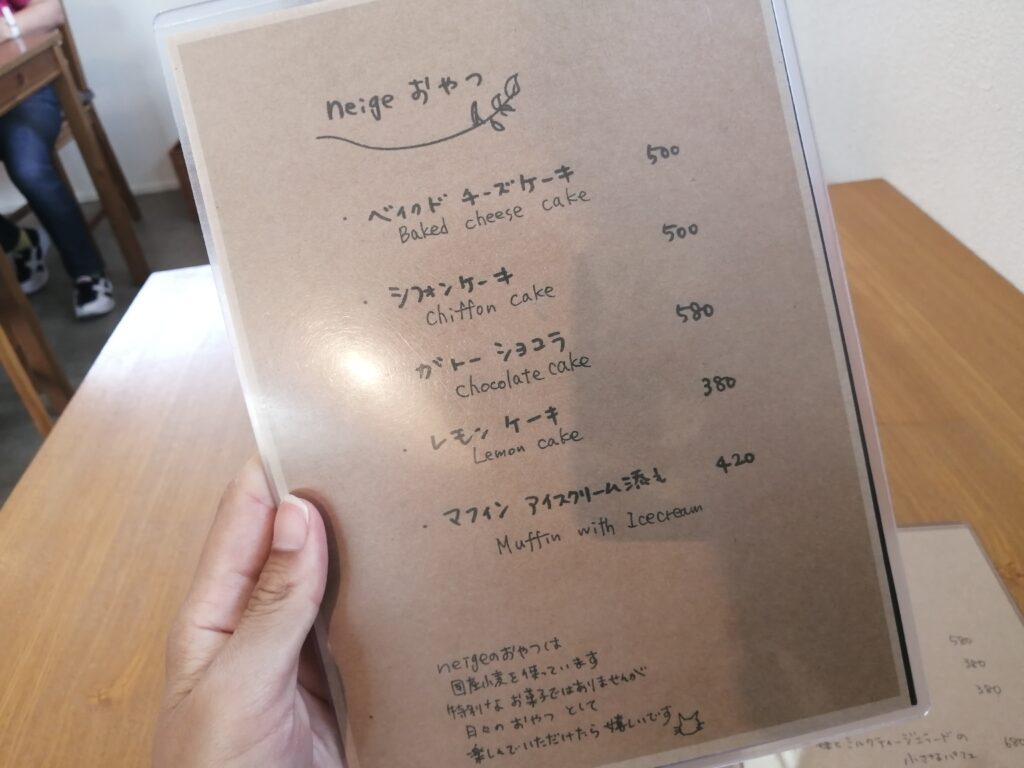 neige おやつ
・ ベイクド チーズケーキ 500
Baked cheese cake
・ シフォンケーキ 500
Chiffon cake
ガトー ショコラ 580
Chocolate cake
・ レモン ケーキ 380
Lemon cake
・ マフィン アイスクリーム添え 420
Muffin with Icecream
neigeのおやつは
国産小麦を使っています
特別なお菓子ではありませんが
日々の おやつ として
楽しんでいただけたら嬉しいです
580
380
380
ミルクティージェラートの 680
小さなパフェ